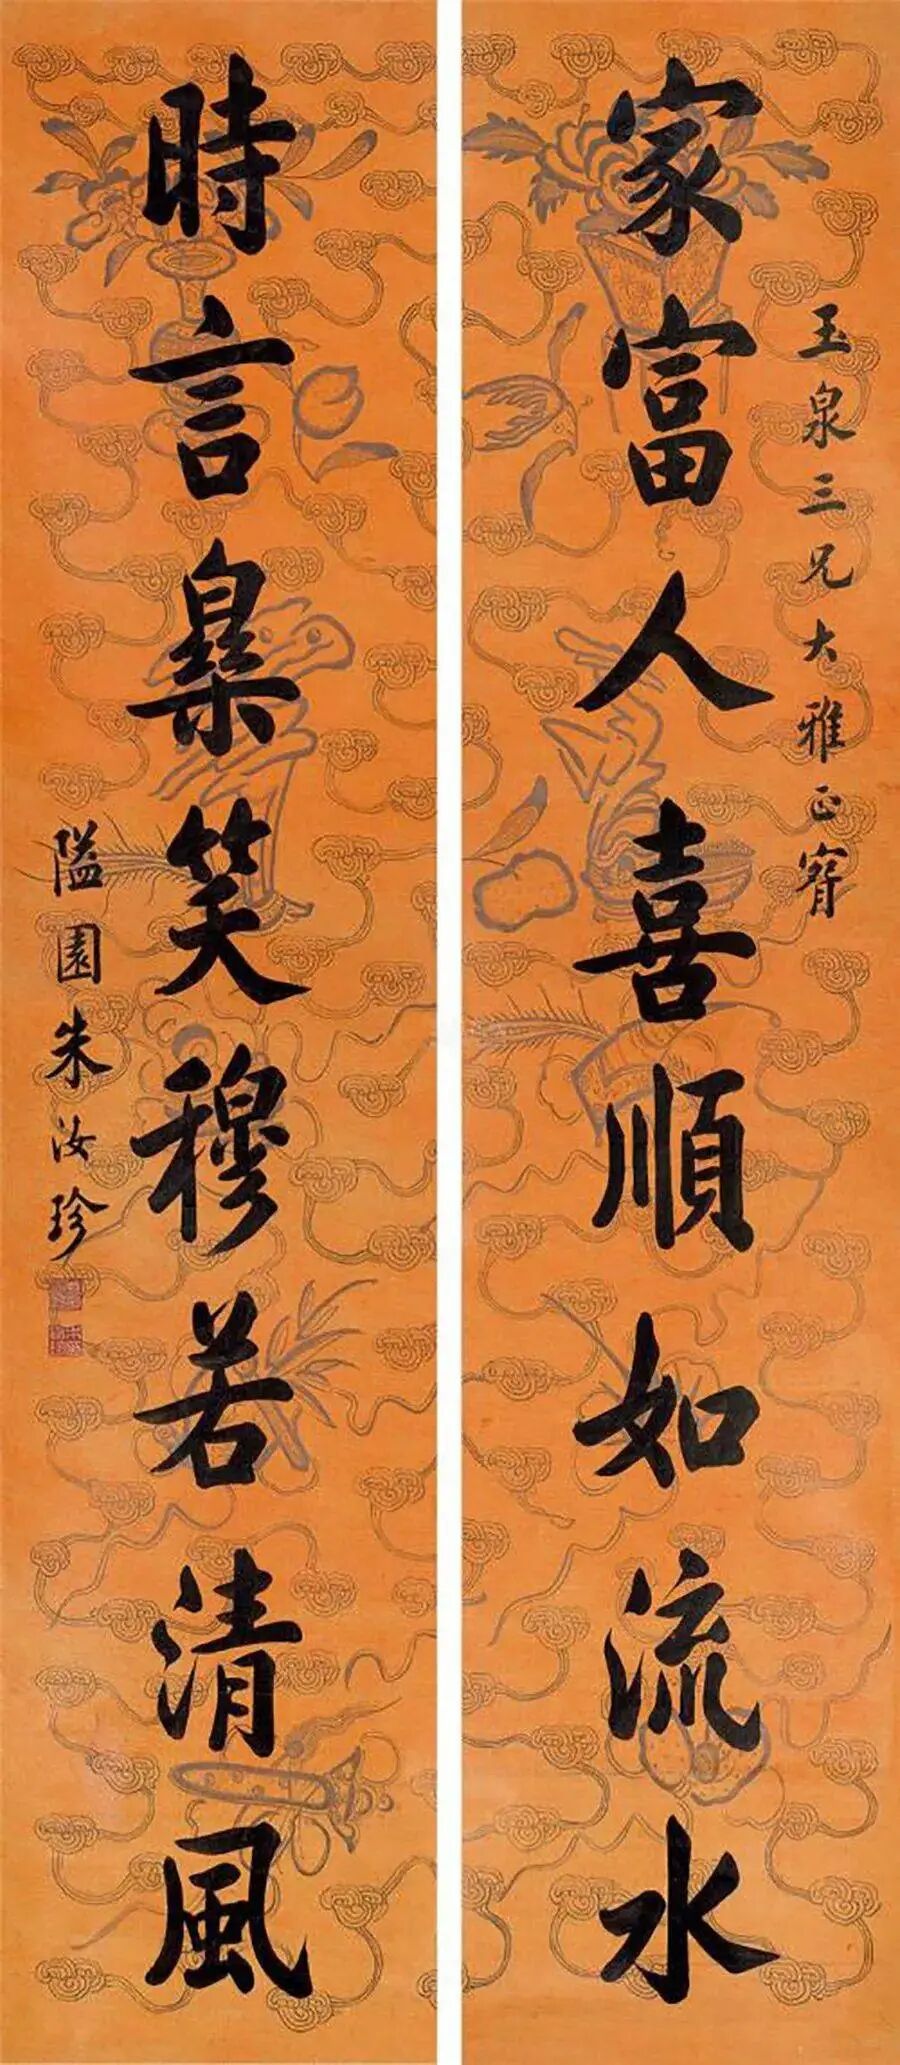 家富人喜順如流水
玉泉三兄大雅正
時言樂笑穆若清風
隘園朱汝珍